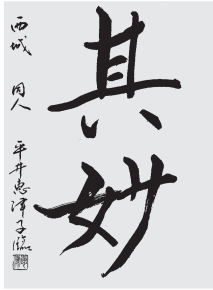 其妙
西城 同人 平井惠津子臨